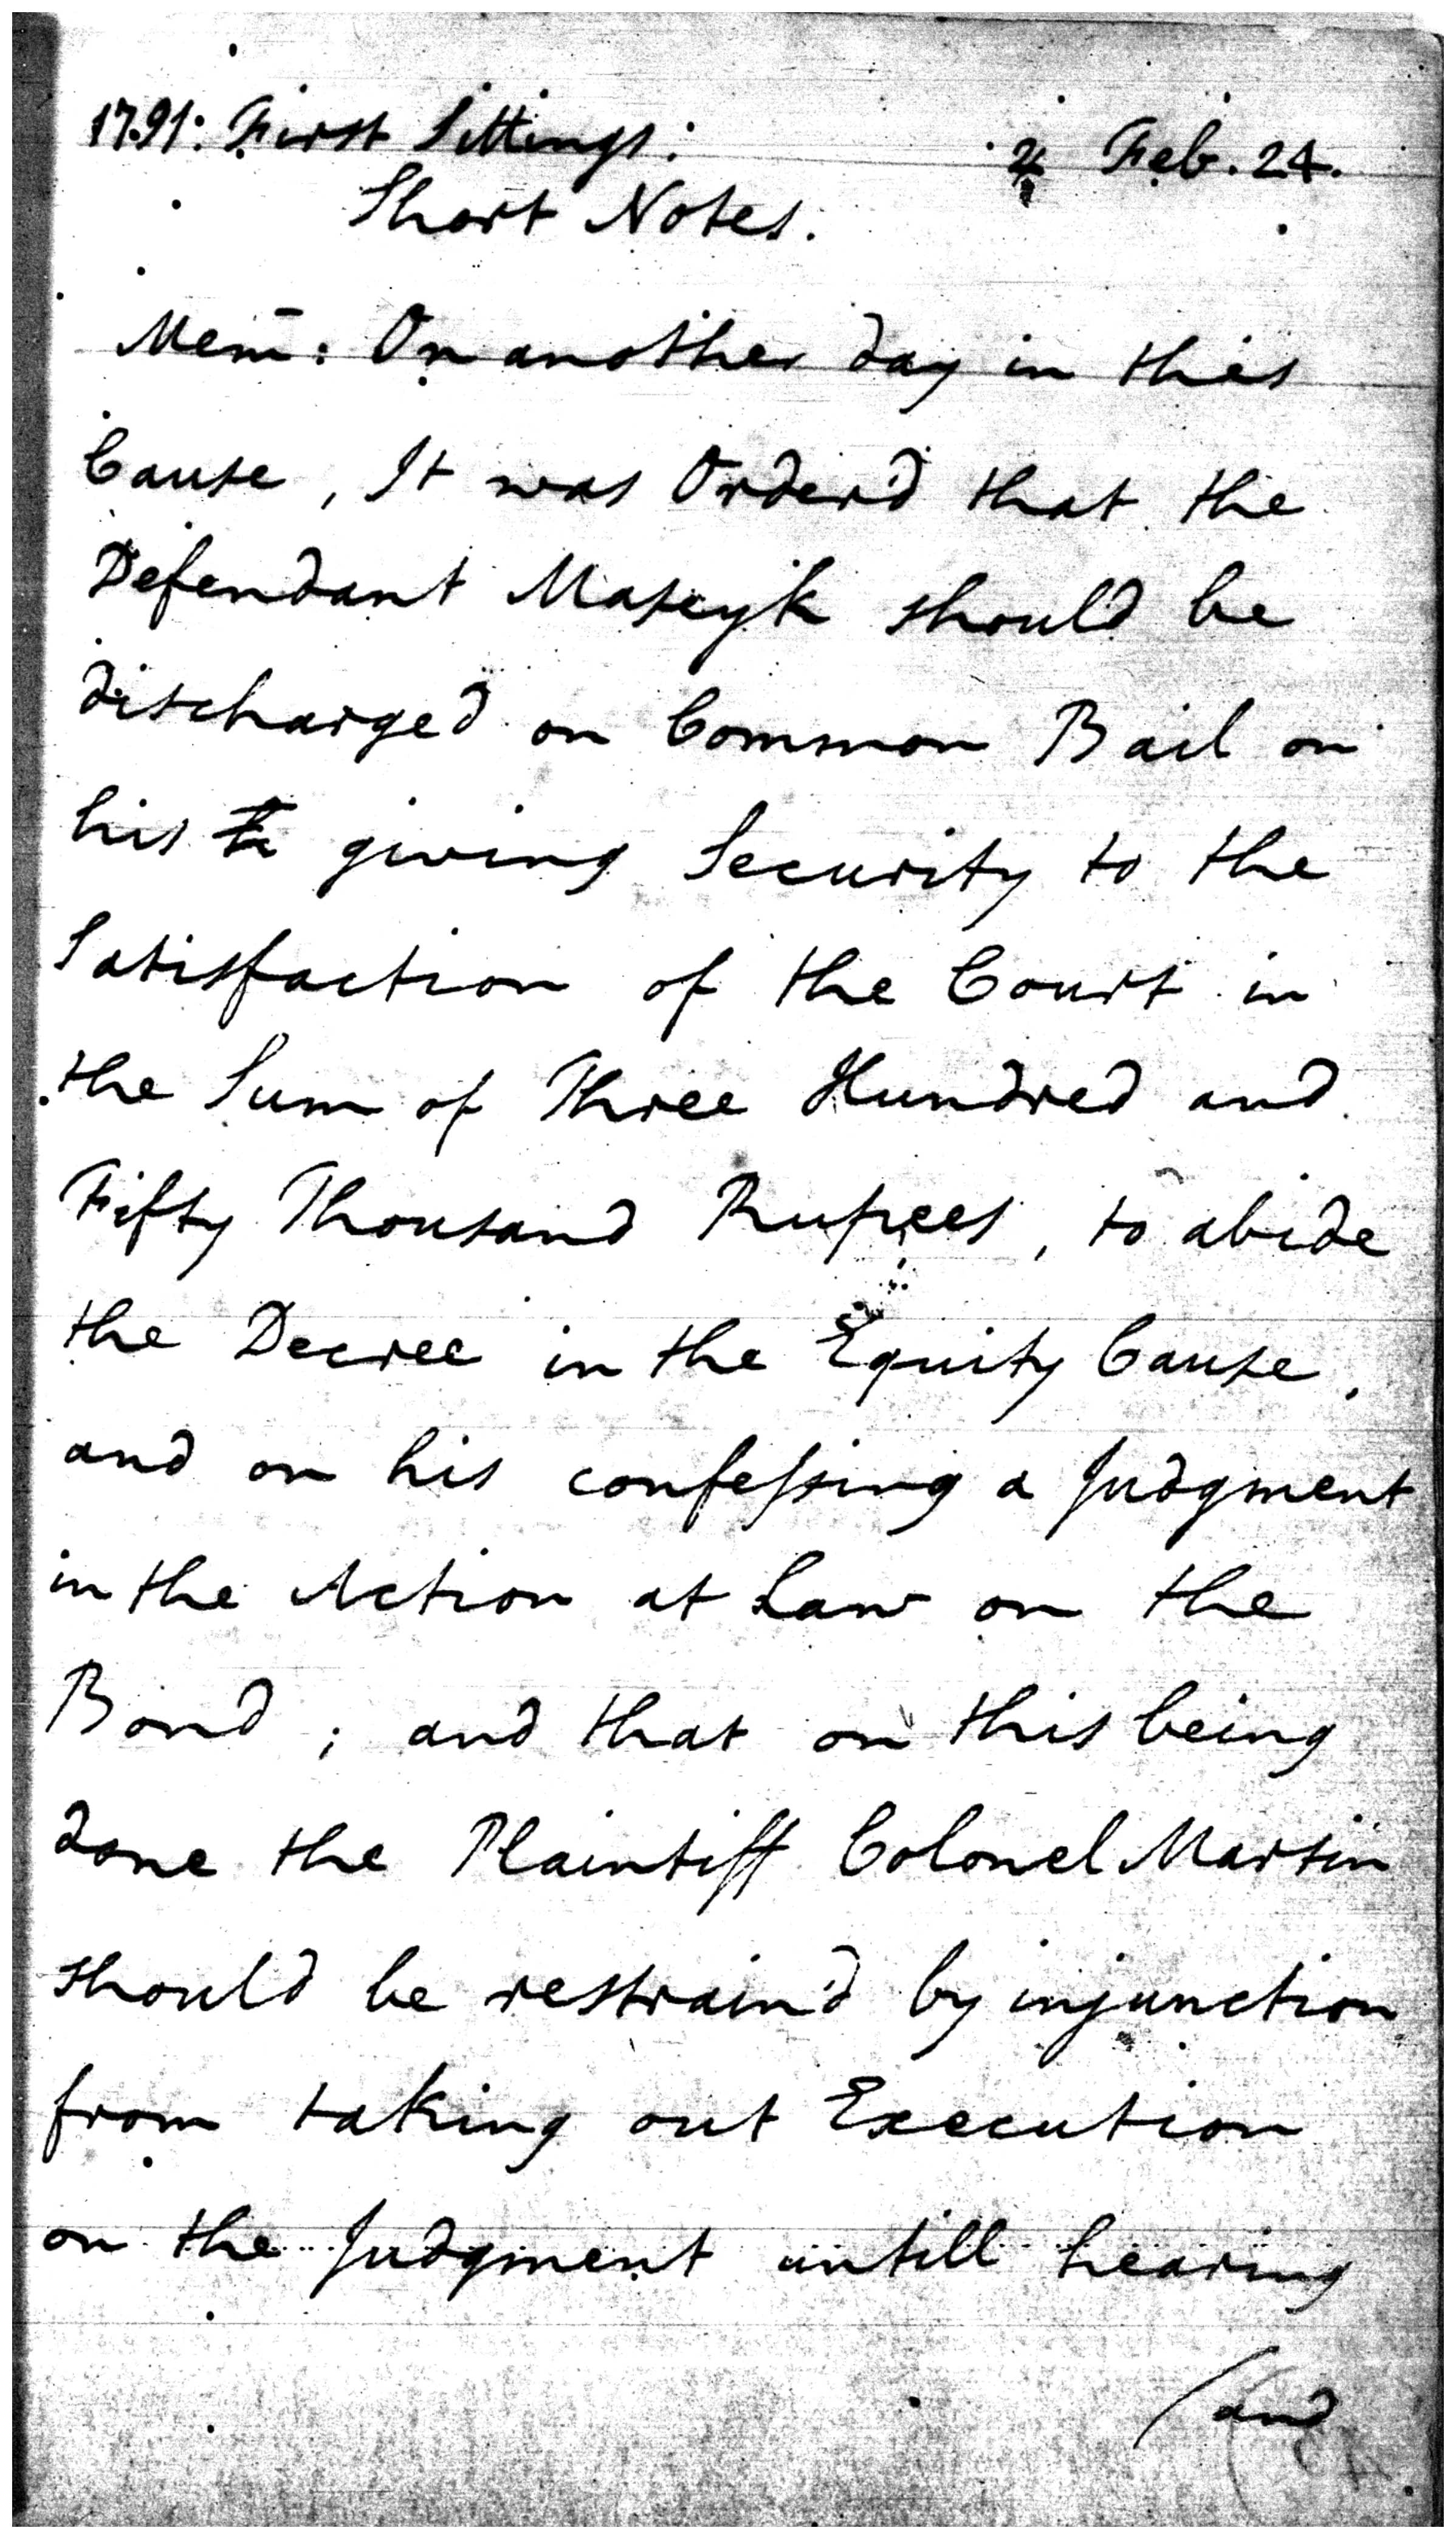 1791: First Sittings: ♃ Feb. 24.
Short Notes.
Mem̄: On another day in this
Cause, It was Order'd that the
Defendant Maseyk should be
discharged on Common Bail on
his giving Security to the
Satisfaction of the Court in
the Sum of Three Hundred and
Fifty Thousand Rupees, to abide
the Decree in the Equity Cause,
and on his confeſsing a Judgment
in the Action at Law on the
Bond; and that on this being
done the Plaintiff Colonel Martin
should be restrain'd by injunction
from taking out Execution
on the Judgment untill hearing
(and